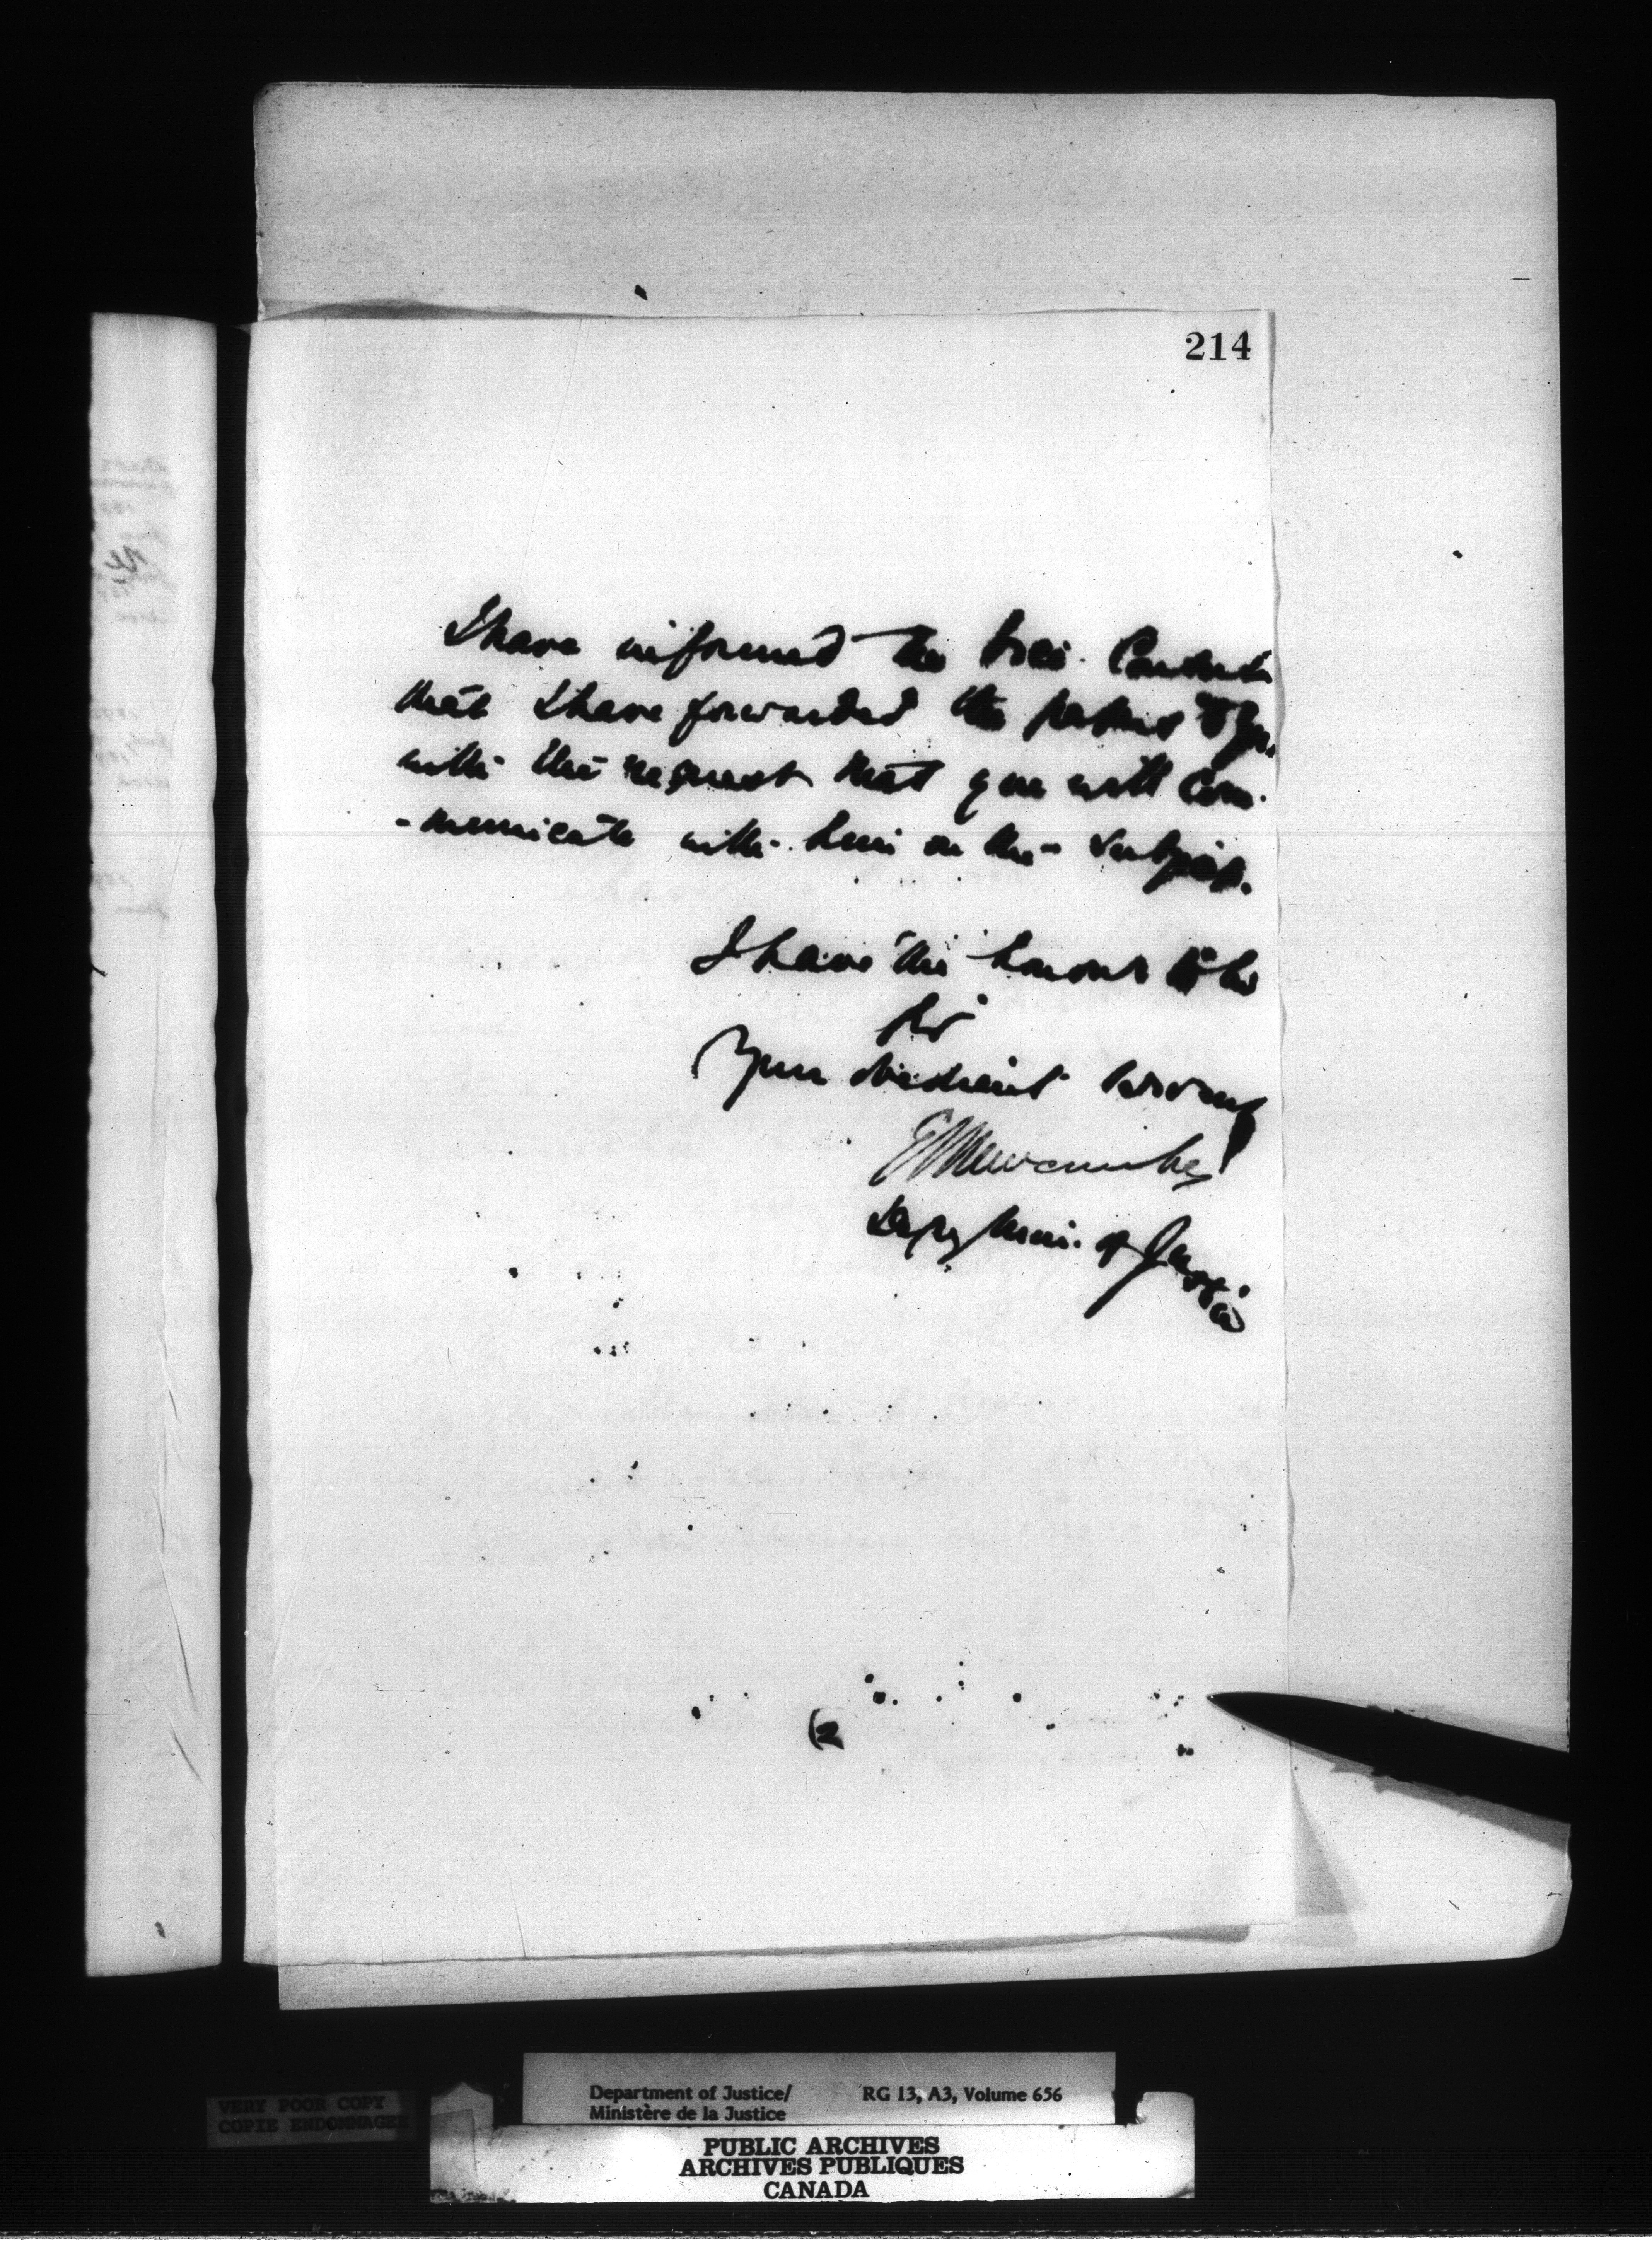 214
I have informed the
that I have forwarded the papers to you
with the request that you will com-
-municate with him on the subject.
I have the honour to be
Sir
Your obedient servant
E L Newcombe
Depy Min. of Justice
(2
Department of Justice/ RG 13, A3, Volume 656
Ministère de la Justice
VERY POOR COPY
COPIE ENDOMMAGEE
PUBLIC ARCHIVES
ARCHIVES PUBLIQUES
CANADA